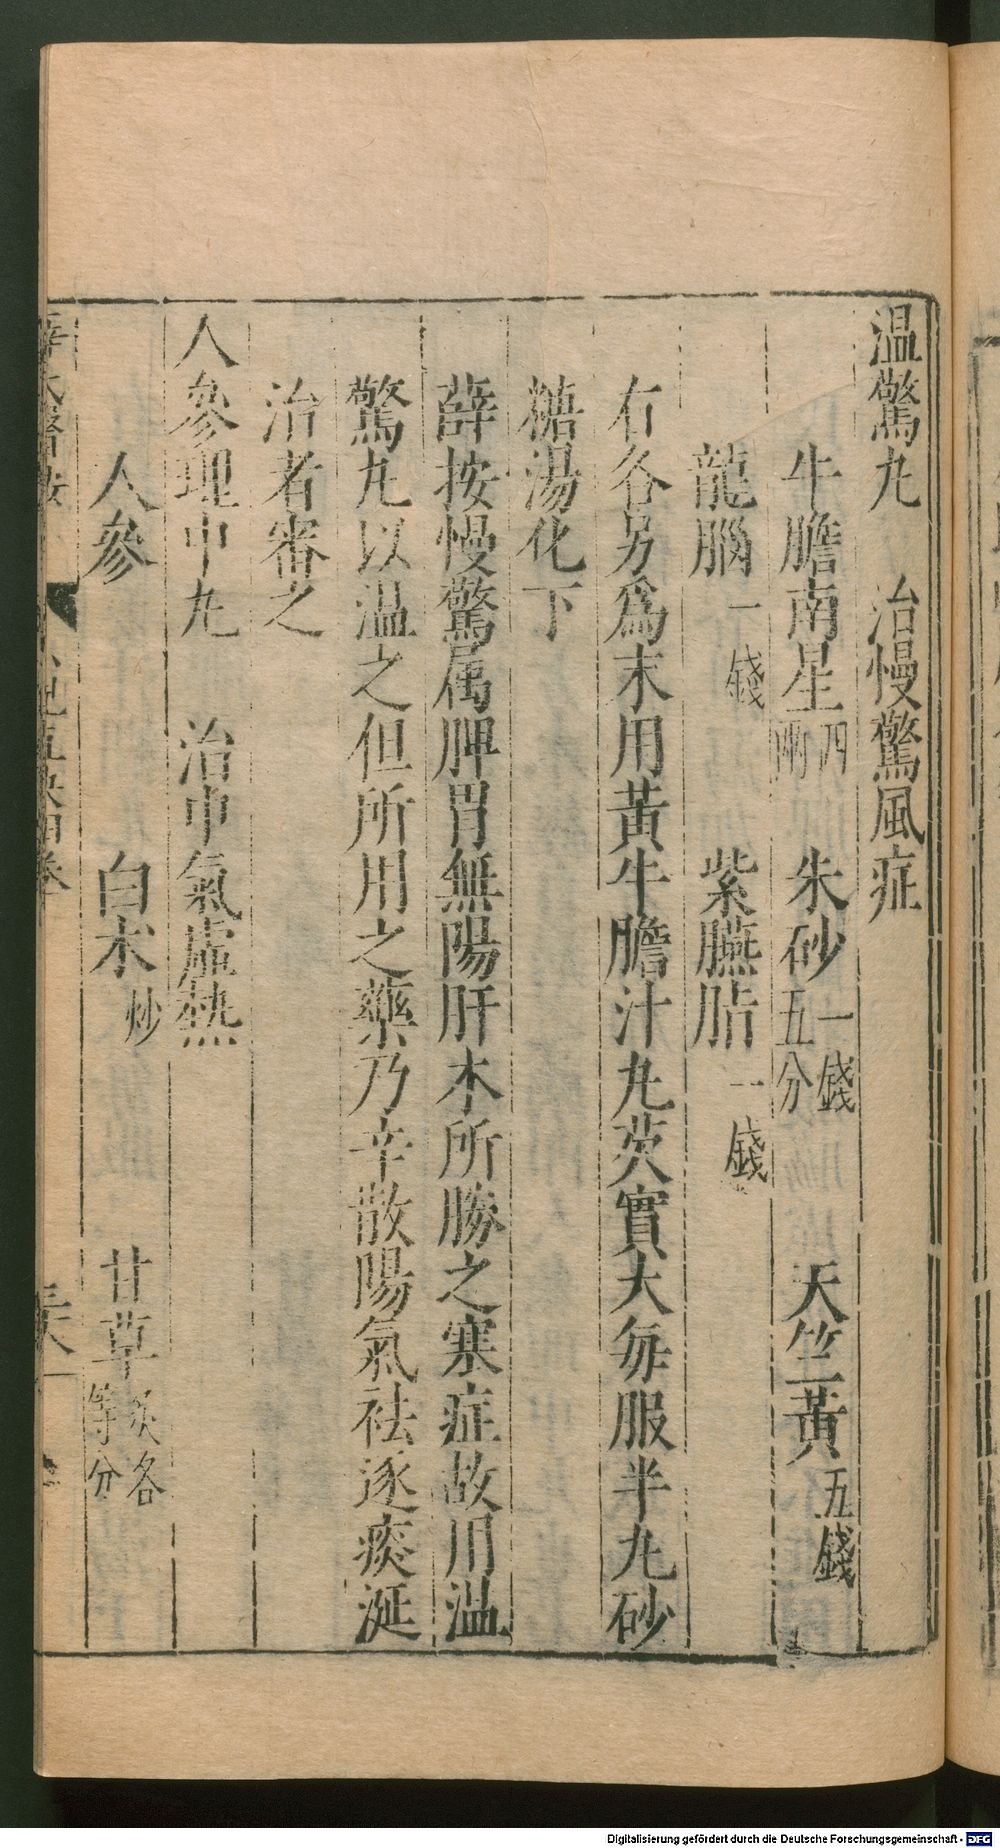 温驚丸　治慢驚風症
牛膽南星四兩　朱砂一錢五分　天竺黃五錢
龍腦一錢　紫臙脂一錢
右各另爲末用黃牛膽汁丸芡實大每服半丸砂
糖湯化下
薛按慢驚属脾胃無陽肝木所勝之寒症故用温
驚丸以温之但所用之藥乃辛散陽氣祛逐痰涎
治者審之
人參理中丸　治中氣虛熱
人參　白术炒　甘草炙各等分
薛氏醫按　卷
Digitalisierung gefördert durch die Deutsche Forschungsgemeinschaft - DFG